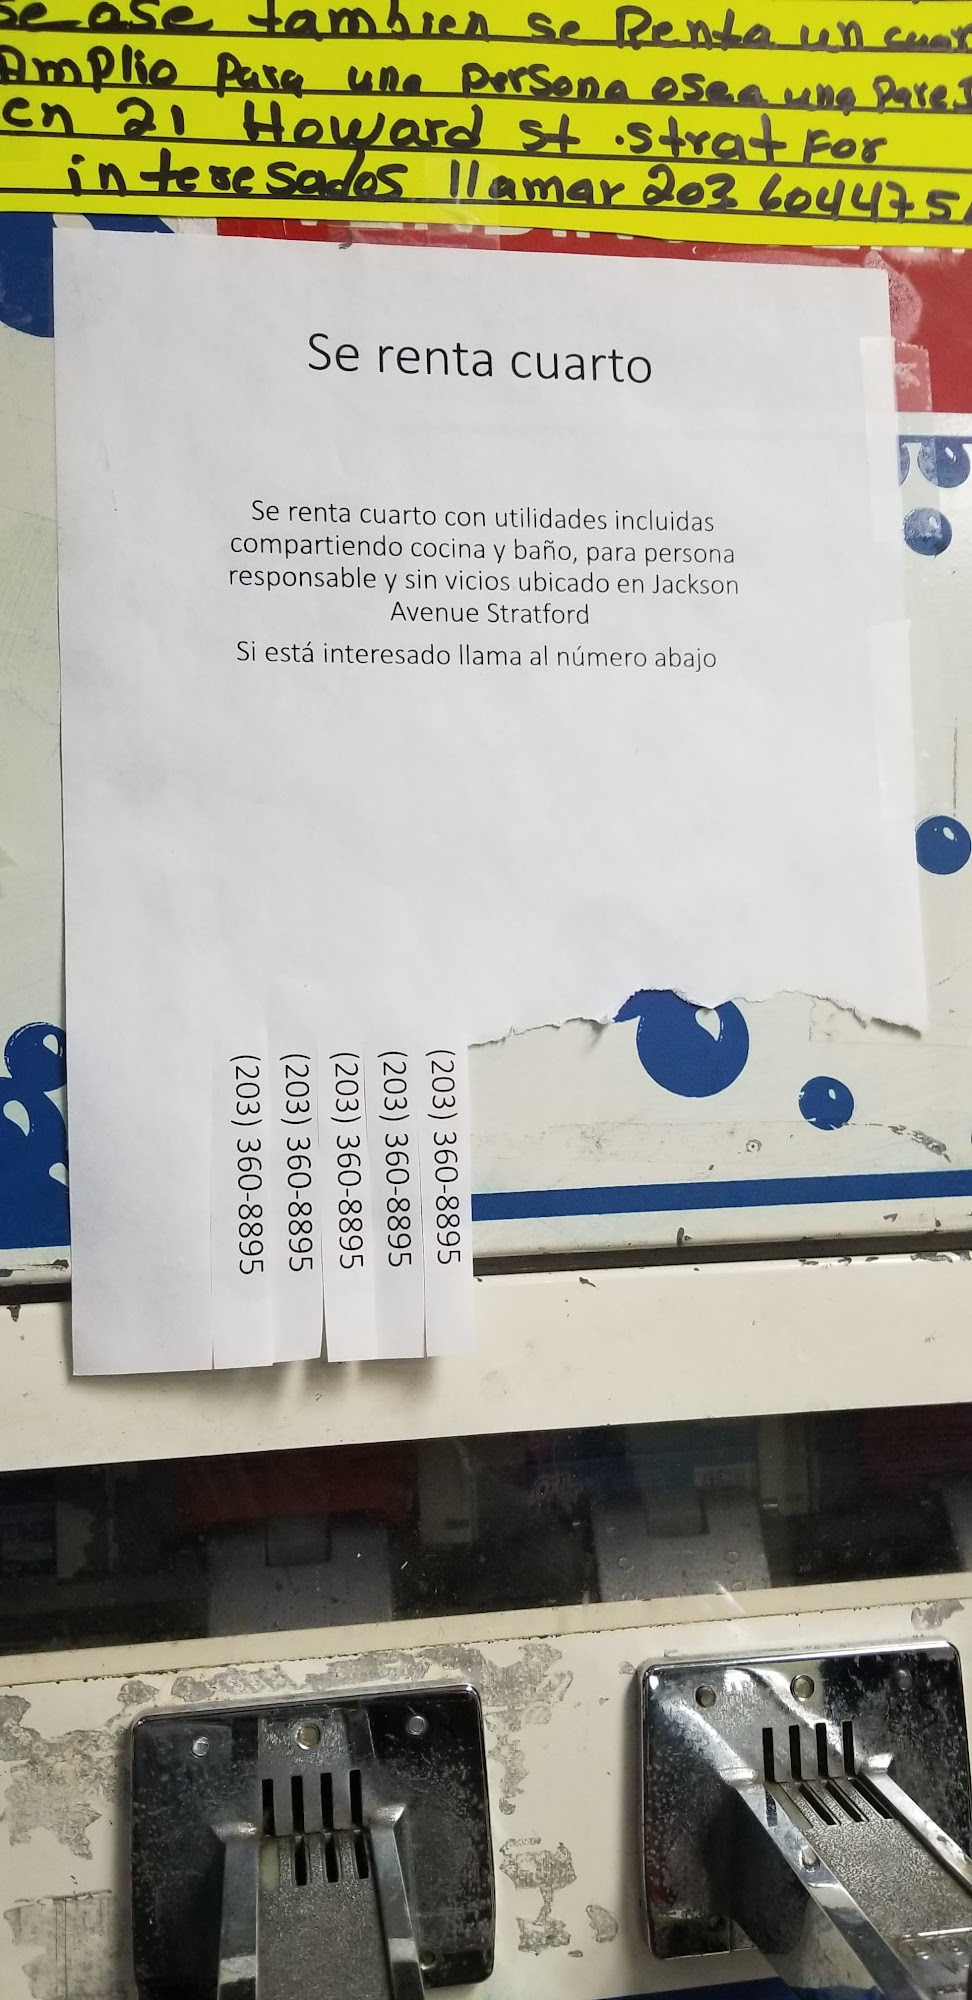 se ase tambien se Renta un
Amplio para una persona osea una
en 21 Howard st .stratFor
interesados llamar 203 604475
Se renta cuarto
Se renta cuarto con utilidades incluidas
compartiendo cocina y baño, para persona
responsable y sin vicios ubicado en Jackson
Avenue Stratford
Si está interesado llama al número abajo
(203) 360-8895
(203) 360-8895
(203) 360-8895
(203) 360-8895
(203) 360-8895